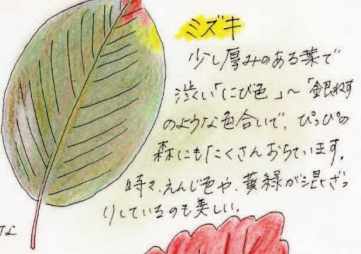 ミズキ
少し厚みのある葉で
渋い「にび色」〜「銀ねず
のような色合いで、ぴっぴの
森にもたくさんおちています。
時々、えんじ色や、黄緑が混ざっ
りしているのも美しい。